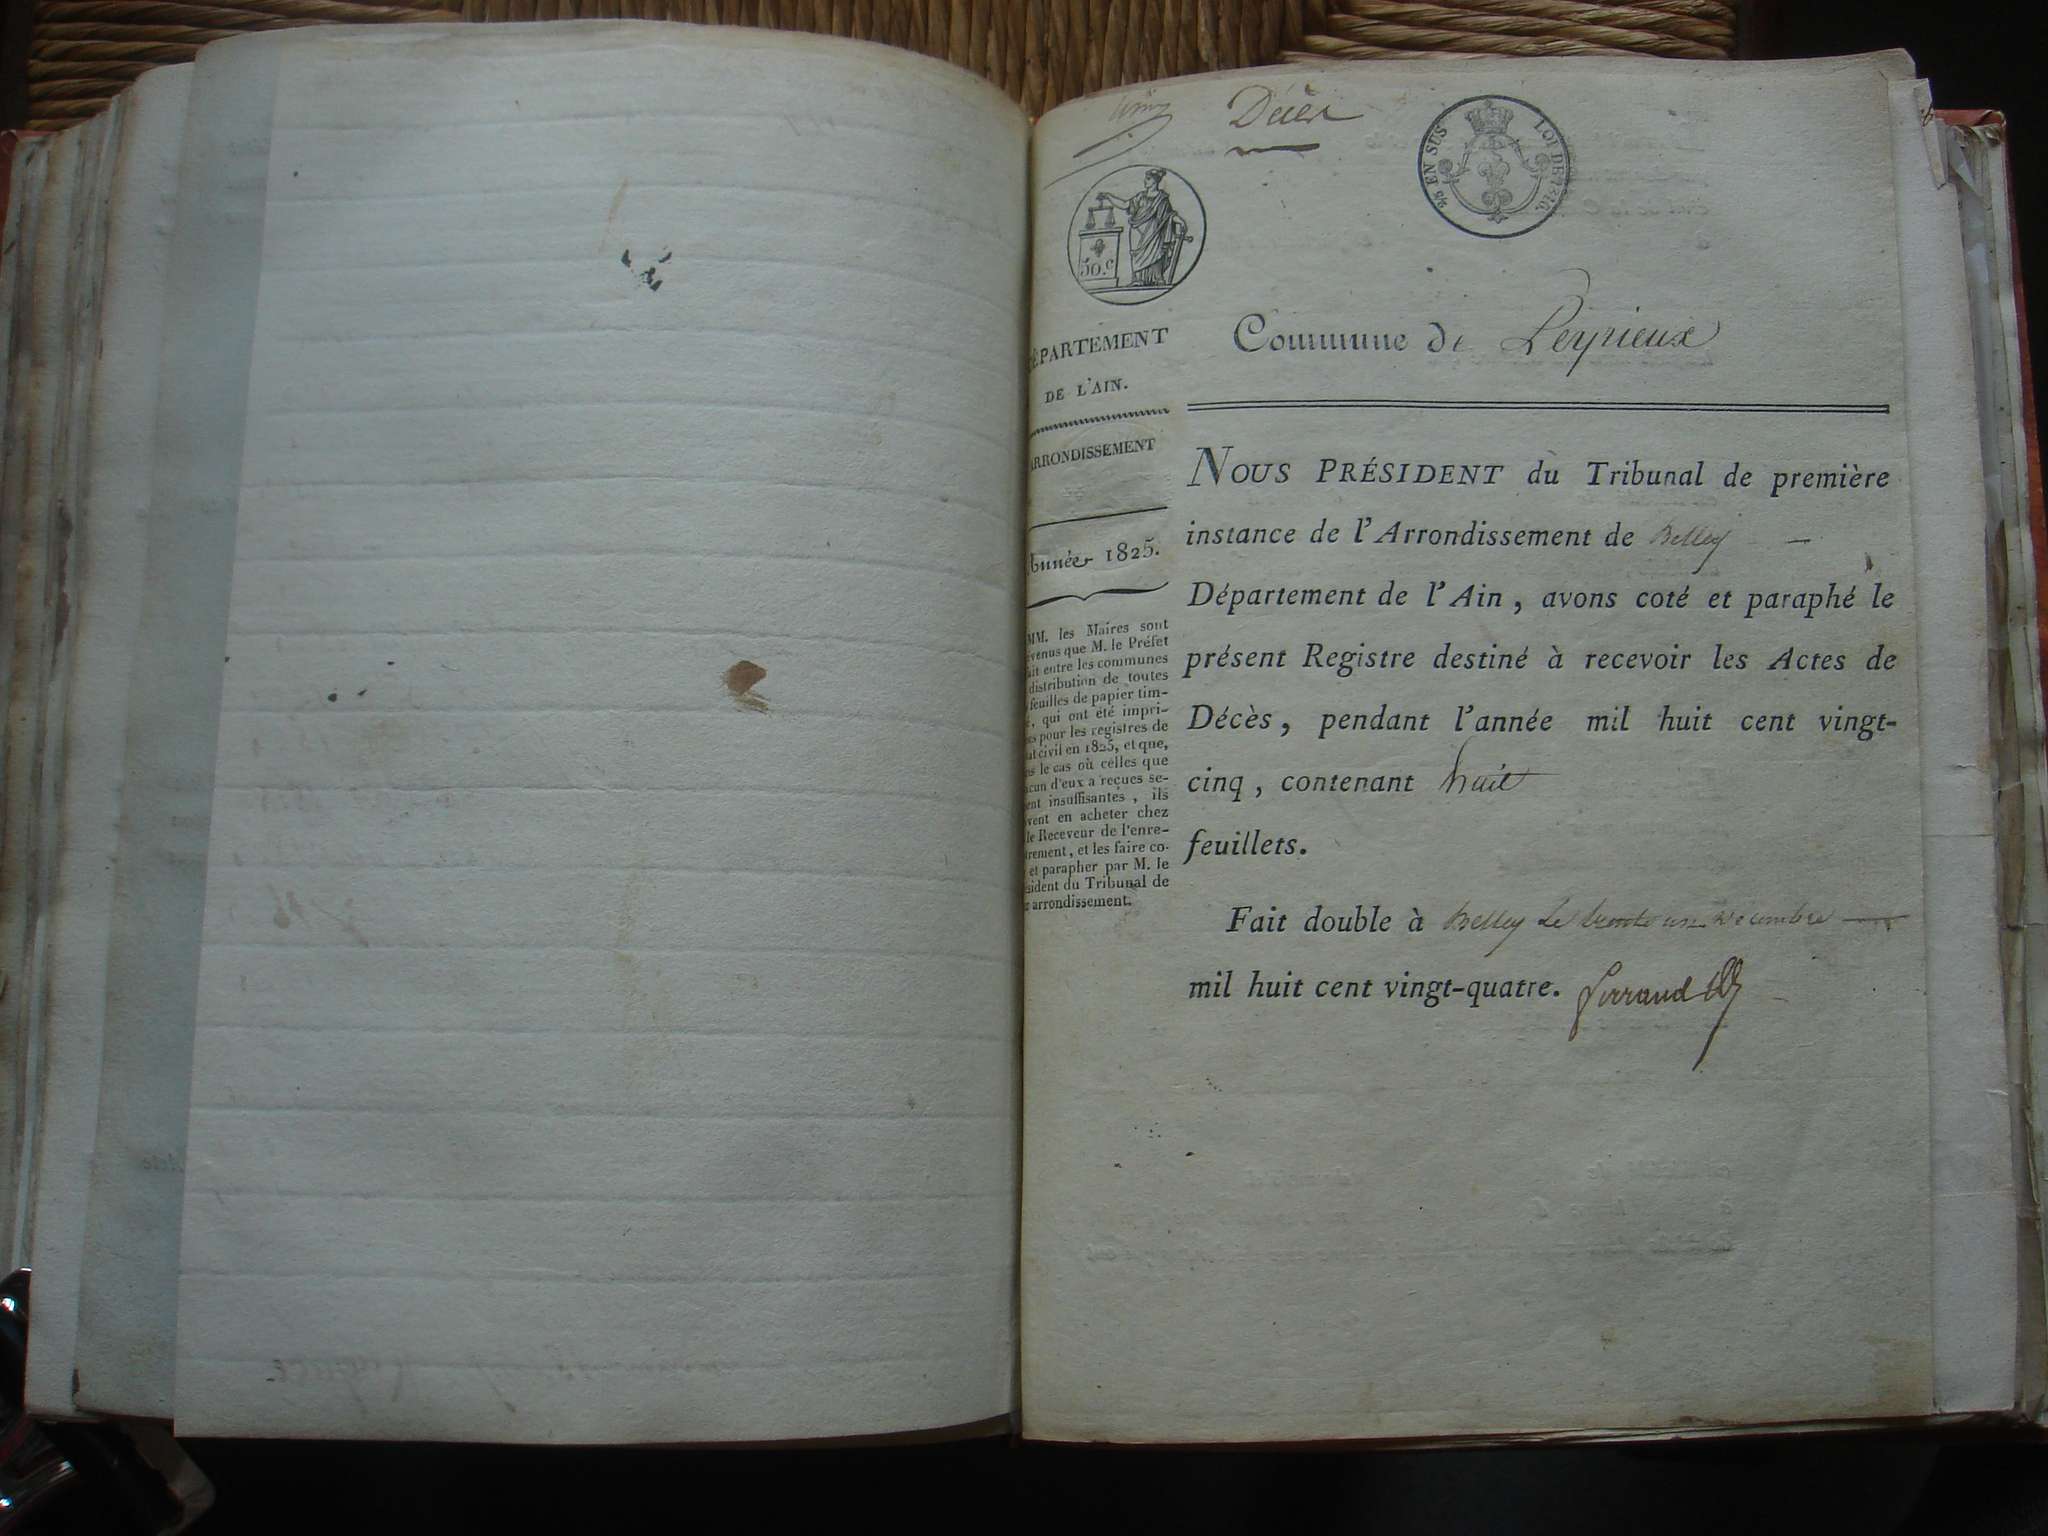 Décès
2/5 EN SUS
LOI DE 1816.
50.c
Commune de Peyrieux
ÉPARTEMENT
DE L'AIN.
RRONDISSEMENT
Année 1825.
MM. les Maires sont
venus que M. le Préfet
ait entre les communes
distribution de toutes
feuilles de papier tim-
, qui ont été impri-
es pour les registres de
at civil en 1825, et que,
ns le cas où celles que
cun d'eux a reçues se-
ent insuffisantes, ils
vent en acheter chez
le Receveur de l'enre-
trement, et les faire co-
et parapher par M. le
sident du Tribunal de
arrondissement.
NOUS PRÉSIDENT du Tribunal de première
instance de l'Arrondissement de Belley —
Département de l'Ain, avons coté et paraphé le
présent Registre destiné à recevoir les Actes de
Décès, pendant l'année mil huit cent vingt-
cinq, contenant huit
feuillets.
Fait double à Belley le trente un Décembre —
mil huit cent vingt-quatre. Ferrand